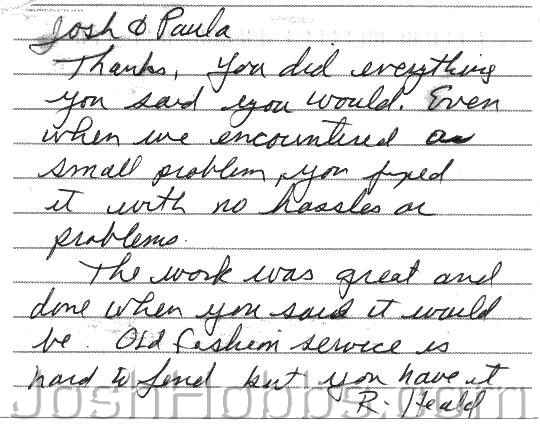 Josh & Paula
Thanks, you did everything
you said you would. Even
when we encountered a
small problem, you fixed
it with no hassles or
problems.
The work was great and
done when you said it would
be. Old fashion service is
hard to find but you have it
R. Heald
JoshHobbs.com